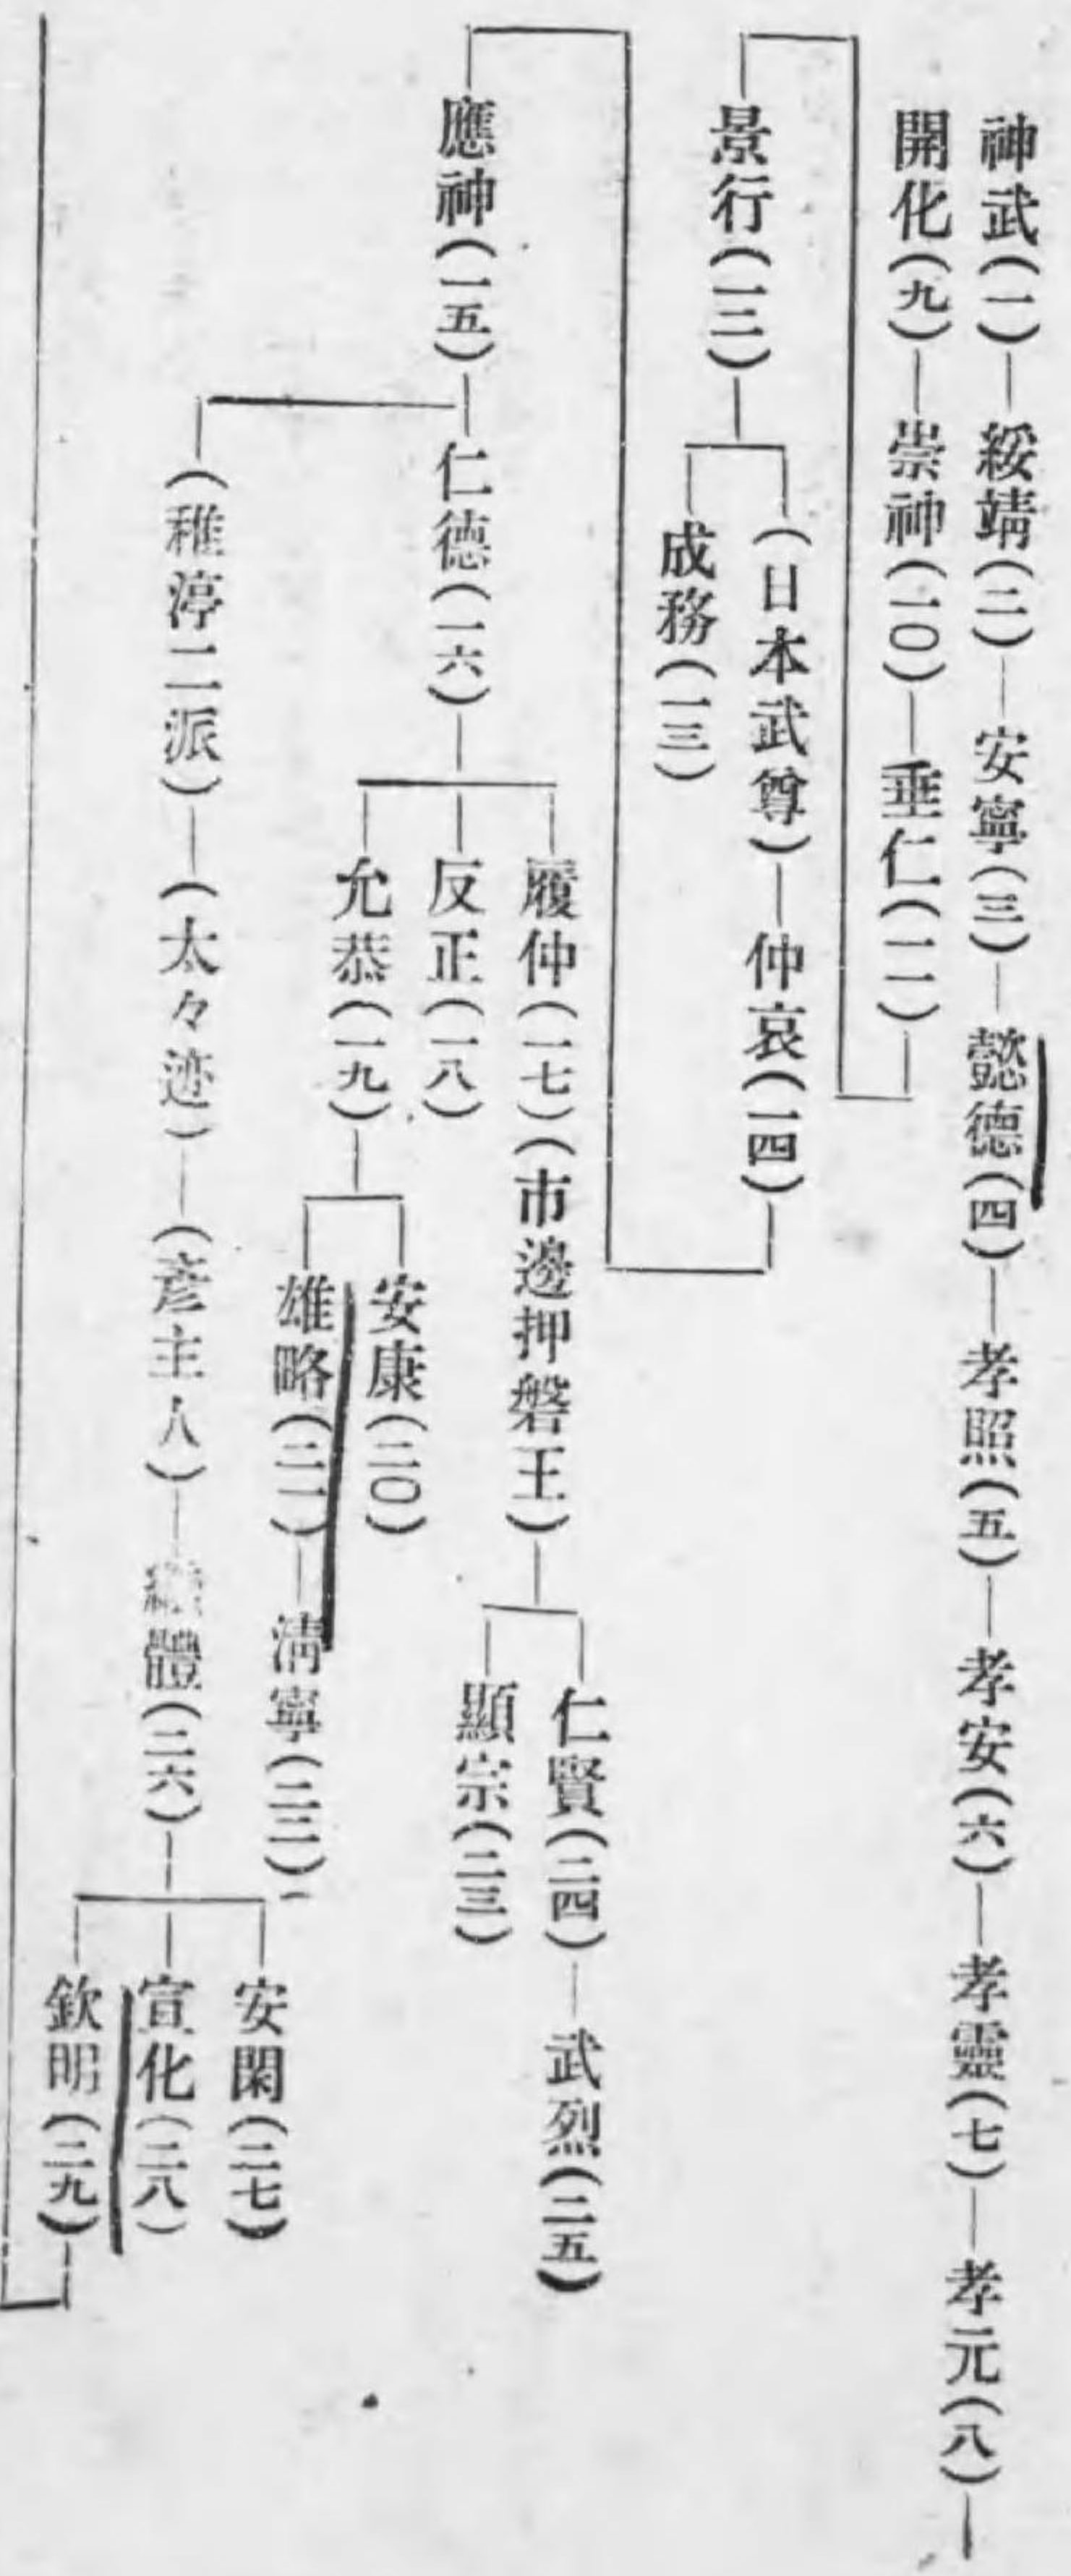 神武(一)―綏靖(二)―安寧(三)―懿德(四)―孝照(五)―孝安(六)―孝靈(七)―孝元(八)―
開化(九)―崇神(一〇)―垂仁(一一)
景行(一二)
(日本武尊)―仲哀(一四)
成務(一三)
應神(一五)―仁德(一六)
履仲(一七)(市邊押磐王)
仁賢(二四)―武烈(二五)
顯宗(二三)
反正(一八)
允恭(一九)
安康(二〇)
雄略(二一)―淸寧(二二)
(稚渟二派)―(太々迹)―(彥主人)―繼體(二六)
安閑(二七)
宣化(二八)
欽明(二九)